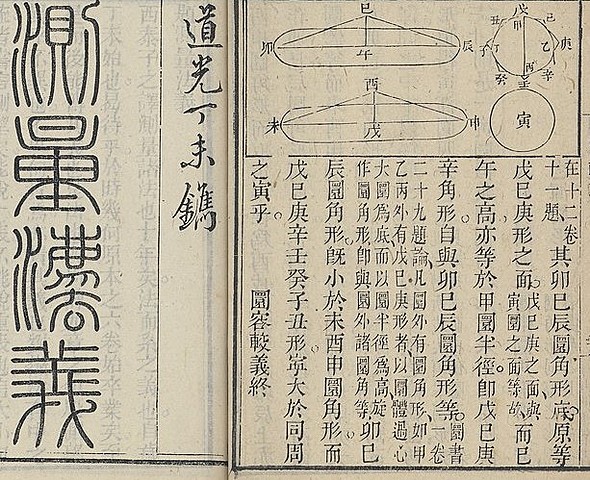 戊
甲
丑
己
子
丁
乙
庚
癸
丙
辛
壬
寅
巳
卯
午
辰
酉
未
戌
申
在十二卷
十一題
其卯巳辰圜角形底原等
戊巳庚形之面
戊巳庚之面與
寅圜之面等故
而巳
午之高亦等於甲圜半徑卽戊巳庚
辛角形自與卯巳辰圜角形等
圜書
一卷
二十九題論凡圜外有圜角形如甲
乙丙外有戊巳庚形者以圜體過心
大圜爲底而以圜半徑爲高旋
作圜角形卽與圜外諸圜角等
卯巳
辰圜角形旣小於未酉申圜角形而
戊巳庚辛壬癸子丑形寧大於同周
之寅乎
圜容較義終
道光丁未鐫
測量灋義